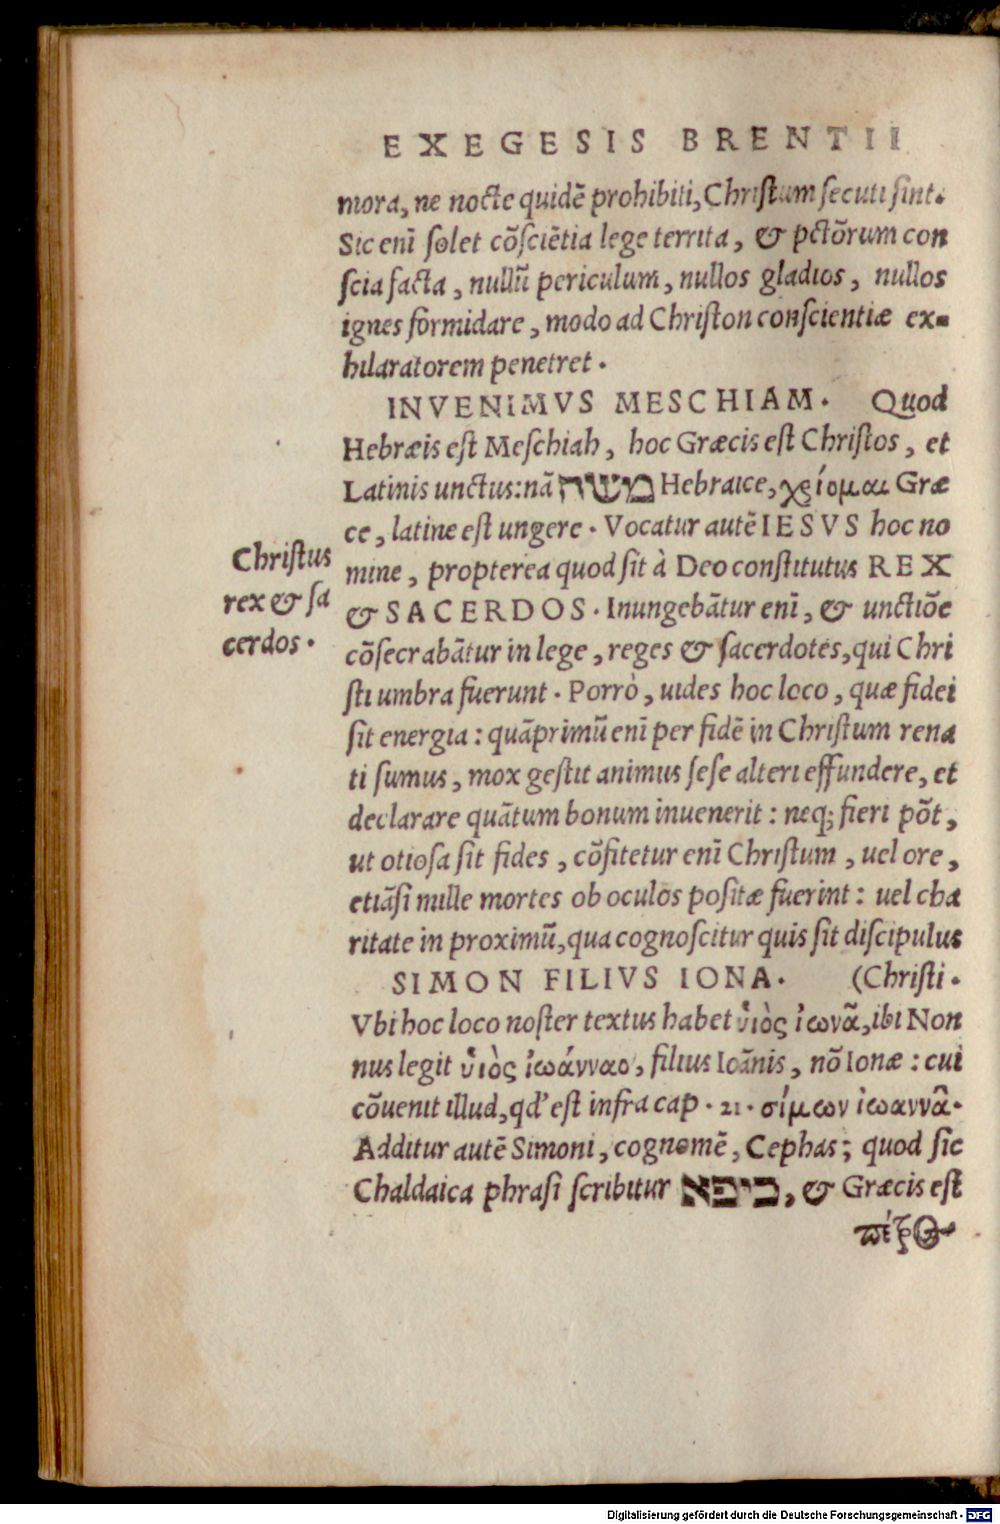 EXEGESIS BRENTII
mora, ne nocte quidē prohibiti, Christum secuti sint.
Sic enī solet cōsciētia lege territa, & pctōrum con
scia facta, nullū periculum, nullos gladios, nullos
ignes formidare, modo ad Christon conscientiæ ex=
hilaratorem penetret.
INVENIMVS MESCHIAM. Quod
Hebræis est Meschiah, hoc Græcis est Christos, et
Latinis unctus: nā משח Hebraice, χρίομαι Græ
ce, latine est ungere. Vocatur autē IESVS hoc no
mine, propterea quod sit à Deo constitutus REX
& SACERDOS. Inungebātur enī, & unctiōe
cōsecrabātur in lege, reges & sacerdotes, qui Chri
sti umbra fuerunt. Porrò, uides hoc loco, quæ fidei
sit energia: quāprimū enī per fidē in Christum rena
ti sumus, mox gestit animus sese alteri effundere, et
declarare quātum bonum inuenerit: neq; fieri pōt,
ut otiosa sit fides, cōfitetur enī Christum, uel ore,
etiāsi mille mortes ob oculos positæ fuerint: uel cha
ritate in proximū, qua cognoscitur quis sit discipulus
SIMON FILIVS IONA. (Christi.
Vbi hoc loco noster textus habet ὑιὸς ἰωνᾶ, ibi Non
nus legit ὑιὸς ἰωάνναο, filius Ioānis, nō Ionæ: cui
cōuenit illud, qd' est infra cap. 21. σίμων ἰωαννᾶ.
Additur autē Simoni, cognomē, Cephas; quod sic
Chaldaica phrasi scribitur כיפא, & Græcis est
πέτρος
Christus
rex & sa
cerdos.
Digitalisierung gefördert durch die Deutsche Forschungsgemeinschaft - DFG